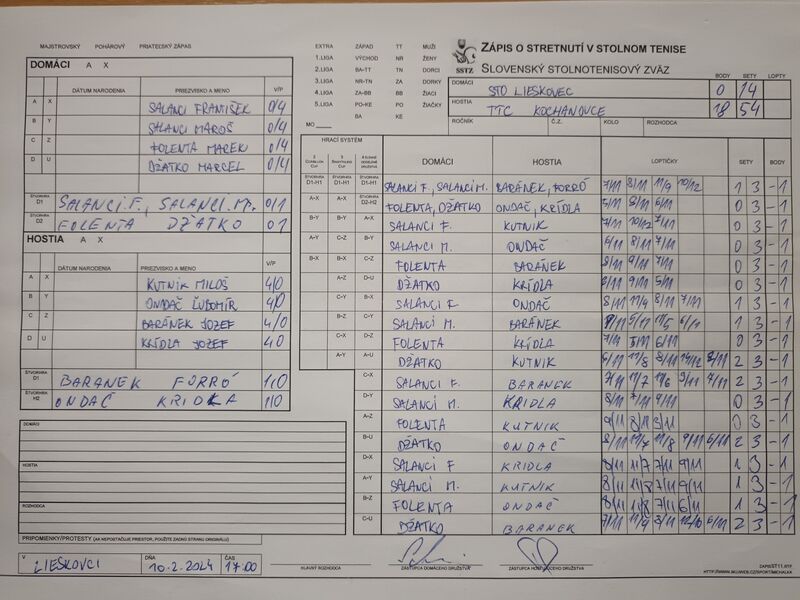 MAJSTROVSKÝ POHÁROVÝ PRIATEĽSKÝ ZÁPAS
DOMÁCI A X
DÁTUM NARODENIA PRIEZVISKO A MENO V/P
A X SALANCI FRANTIŠEK 0/4
B Y SALANCI MAROŠ 0/4
C Z FOLENTA MAREK 0/4
D U DŽATKO MARCEL 0/4
ŠTVORHRA D1 SALANCI F., SALANCI M. 0/1
ŠTVORHRA D2 FOLENTA DŽATKO 0 1
HOSTIA A X
DÁTUM NARODENIA PRIEZVISKO A MENO V/P
A X KUTNIK MILOŠ 4/0
B Y ONDAČ ĽUBOMÍR 4/0
C Z BARÁNEK JOZEF 4/0
D U KRÍDLA JOZEF 4 0
ŠTVORHRA D1 BARANEK FORRÓ 1/0
ŠTVORHRA H2 ONDAČ KRIDLA 1/0
DOMÁCI
HOSTIA
ROZHODCA
PRIPOMIENKY/PROTESTY (AK NEPOSTAČUJE PRIESTOR, POUŽITE ZADNÚ STRANU ORIGINÁLU)
V LIESKOVCI DŇA 10.2.2024 ČAS 17:00
EXTRA ZÁPAD TT MUŽI
1.LIGA VÝCHOD NR ŽENY
2.LIGA BA-TT TN DORCI
3.LIGA NR-TN ZA DORKY
4.LIGA ZA-BB BB ŽIACI
5.LIGA PO-KE PO ŽIAČKY
BA KE
MO
SSTZ
ZÁPIS O STRETNUTÍ V STOLNOM TENISE
SLOVENSKÝ STOLNOTENISOVÝ ZVÄZ
BODY SETY LOPTY
DOMÁCI STO LIESKOVEC 0 14
HOSTIA TTC KOCHANOVCE 18 54
ROČNÍK Č.Z. KOLO ROZHODCA
HRACÍ SYSTÉM
DOMÁCI HOSTIA LOPTIČKY SETY BODY
ŠTVORHRA D1-H1 ŠTVORHRA D1-H1 ŠTVORHRA D1-H1 SALANCI F., SALANCI M. BARÁNEK, FORRÓ 7/11 8/11 11/9 10/12 1 3 - 1
A-X A-X ŠTVORHRA D2-H2 FOLENTA, DŽATKO ONDAČ, KRÍDLA 5/11 8/11 6/11 0 3 - 1
B-Y B-Y A-X SALANCI F. KUTNIK 7/11 10/12 7/11 0 3 - 1
A-Y C-Z B-Y SALANCI M. ONDAČ 6/11 8/11 7/11 0 3 - 1
B-X B-X C-Z FOLENTA BARÁNEK 8/11 9/11 7/11 0 3 - 1
A-Z D-U DŽATKO KRÍDLA 6/11 9/11 5/11 0 3 - 1
C-Y B-X SALANCI F. ONDAČ 8/11 11/9 8/11 7/11 1 3 - 1
B-Z A-Y SALANCI M. BARÁNEK 1 3 - 1
C-X D-Z FOLENTA KRÍDLA 0 3 - 1
A-Y C-U DŽATKO KUTNIK 2 3 - 1
C-X SALANCI F. BARANEK 2 3 - 1
D-Y SALANCI M. KRIDLA 8/11 7/11 4/11 0 3 - 1
A-Z FOLENTA KUTNIK 9/11 8/11 3/11 0 3 - 1
B-U DŽATKO ONDAČ 8/11 11/7 11/8 9/11 6/11 2 3 - 1
D-X SALANCI F KRIDLA 8/11 11/7 7/11 9/11 1 3 - 1
A-Y SALANCI M. KUTNIK 8/11 11/8 7/11 9/11 1 3 - 1
B-Z FOLENTA ONDAČ 1 3 - 1
C-U DŽATKO BARANEK 2 3 - 1
HLAVNÝ ROZHODCA ZÁSTUPCA DOMÁCEHO DRUŽSTVA ZÁSTUPCA HOSŤUJÚCEHO DRUŽSTVA
ZAPISST11.RTF